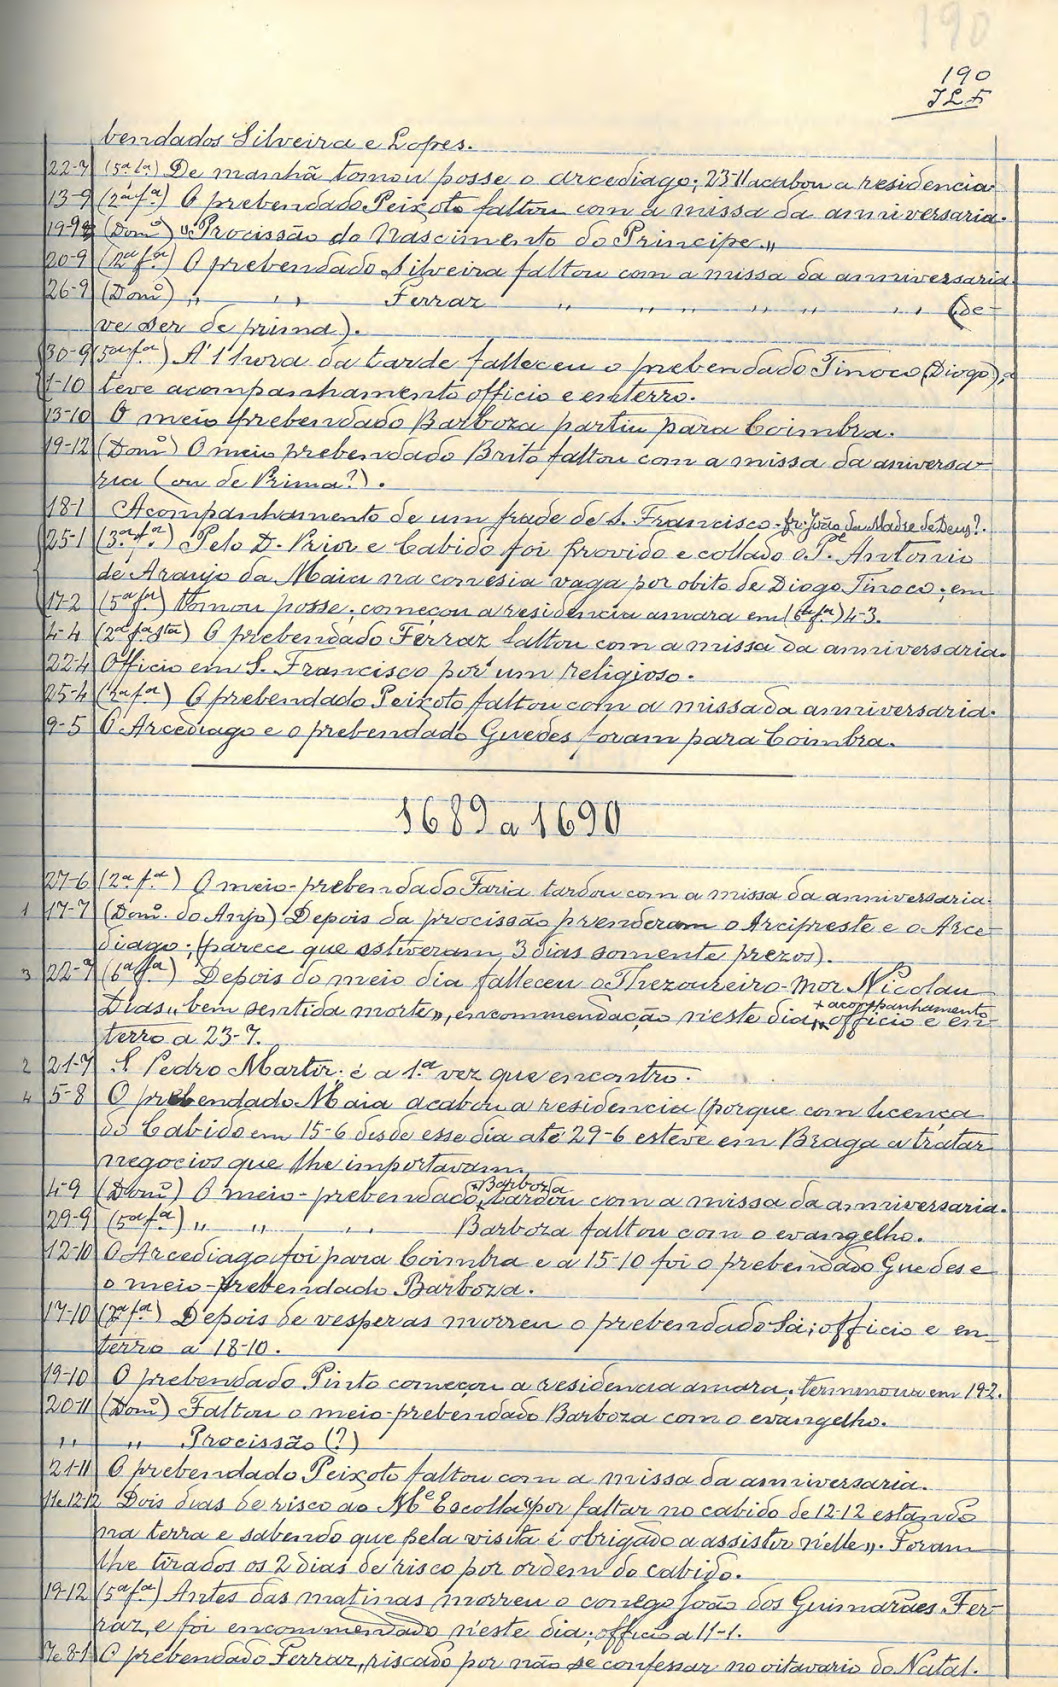 190
190
bendados Silveira e Lopes.
22-7 (5ª fª) De manhã tomou posse o arcediago; 23-11 acabou a residencia
13-9 (2ª fª) O prebendado Peixoto faltou com a missa da anniversaria.
19-9 (Domº) "Procissão do Nascimento do Principe"
20-9 (2ª fª) O prebendado Silveira faltou com a missa da anniversaria
26-9 (Domº) " " Ferraz " " " " " (de-
ve ser de prima).
30-9 (5ª fª) A' 1 hora da tarde falleceu o prebendado Tinoco (Diogo); a
1-10 teve acompanhamento officio e enterro.
13-10 O meio prebendado Barboza partiu para Coimbra.
19-12 (Domº) O meio prebendado Brito faltou com a missa da aniversa-
ria (ou de Prima?).
18-1 Acompanhamento de um frade de S. Francisco - fr. João da Madre de Deus?.
25-1 (3ª fª) Pelo D. Prior e Cabido foi provido e collado o Pe. Antonio
de Araujo da Maia na conesia vaga por obito de Diogo Tinoco; em
17-2 (5ª fª) tomou posse; começou a residencia amara em (6ª fª) 4-3.
4-4 (2ª fª stª) O prebendado Ferraz faltou com a missa da anniversaria.
22-4 Officio em S. Francisco por um religioso.
25-4 (2ª fª) O prebendado Peixoto faltou com a missa da anniversaria.
9-5 O Arcediago e o prebendado Guedes foram para Coimbra.
1689 a 1690
27-6 (2ª fª) O meio-prebendado Faria tardou com a missa da anniversaria.
1 17-7 (Domº. do Anjo) Depois da procissão prenderam o Arcipreste e o Arce-
diago; (parece que estiveram 3 dias somente prezos).
3 22-7 (6ª fª) Depois do meio dia falleceu o Thezoureiro-Mor Nicolau
Dias "bem sentida morte", encommendação n'este dia, + officio e en-
+ acompanhamento
terro a 23-7.
2 21-7 S Pedro Martir; é a 1.ª vez que encontro.
4 5-8 O prebendado Maia acabou a residencia (porque com licença
do Cabido em 15-6 desde esse dia até 29-6 esteve em Braga a tratar
negocios que lhe importavam.
4-9 (Domº) O meio-prebendado + tardou com a missa da anniversaria.
+ Barboza
29-9 (5ª fª) " " " Barboza faltou com o evangelho.
12-10 O Arcediago foi para Coimbra e a 15-10 foi o prebendado Guedes e
o meio-prebendado Barboza.
17-10 (2ª fª) Depois de vesperas morreu o prebendado Sá; officio e en
terro a 18-10.
19-10 O prebendado Pinto começou a residencia amara; terminou em 19-2.
20-11 (Domº) Faltou o meio-prebendado Barboza com o evangelho.
" " Procissão (?)
21-11 O prebendado Peixoto faltou com a missa da anniversaria.
11 e 12-12 Dois dias de risco ao Me Escolla "por faltar no cabido de 12-12 estando
na terra e sabendo que pela visita é obrigado a assistir n'elle". Foram
lhe tirados os 2 dias de risco por ordem do cabido.
19-12 (5ª fª) Antes das matinas morreu o conego João dos Guimarães Fer-
raz, e foi encommendado n'este dia; officio a 11-1.
7 e 8-1 O prebendado Ferraz, riscado por não se confessar no oitavario do Natal.